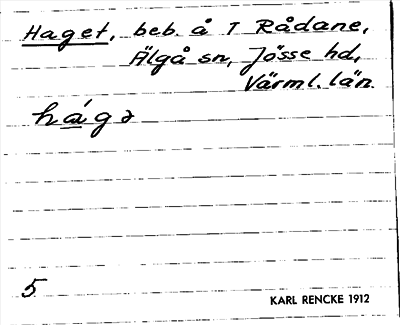 Haget, beb. å T Rådane,
Älgå sn, Jösse hd,
Värml. län.
hágə
5
KARL RENCKE 1912